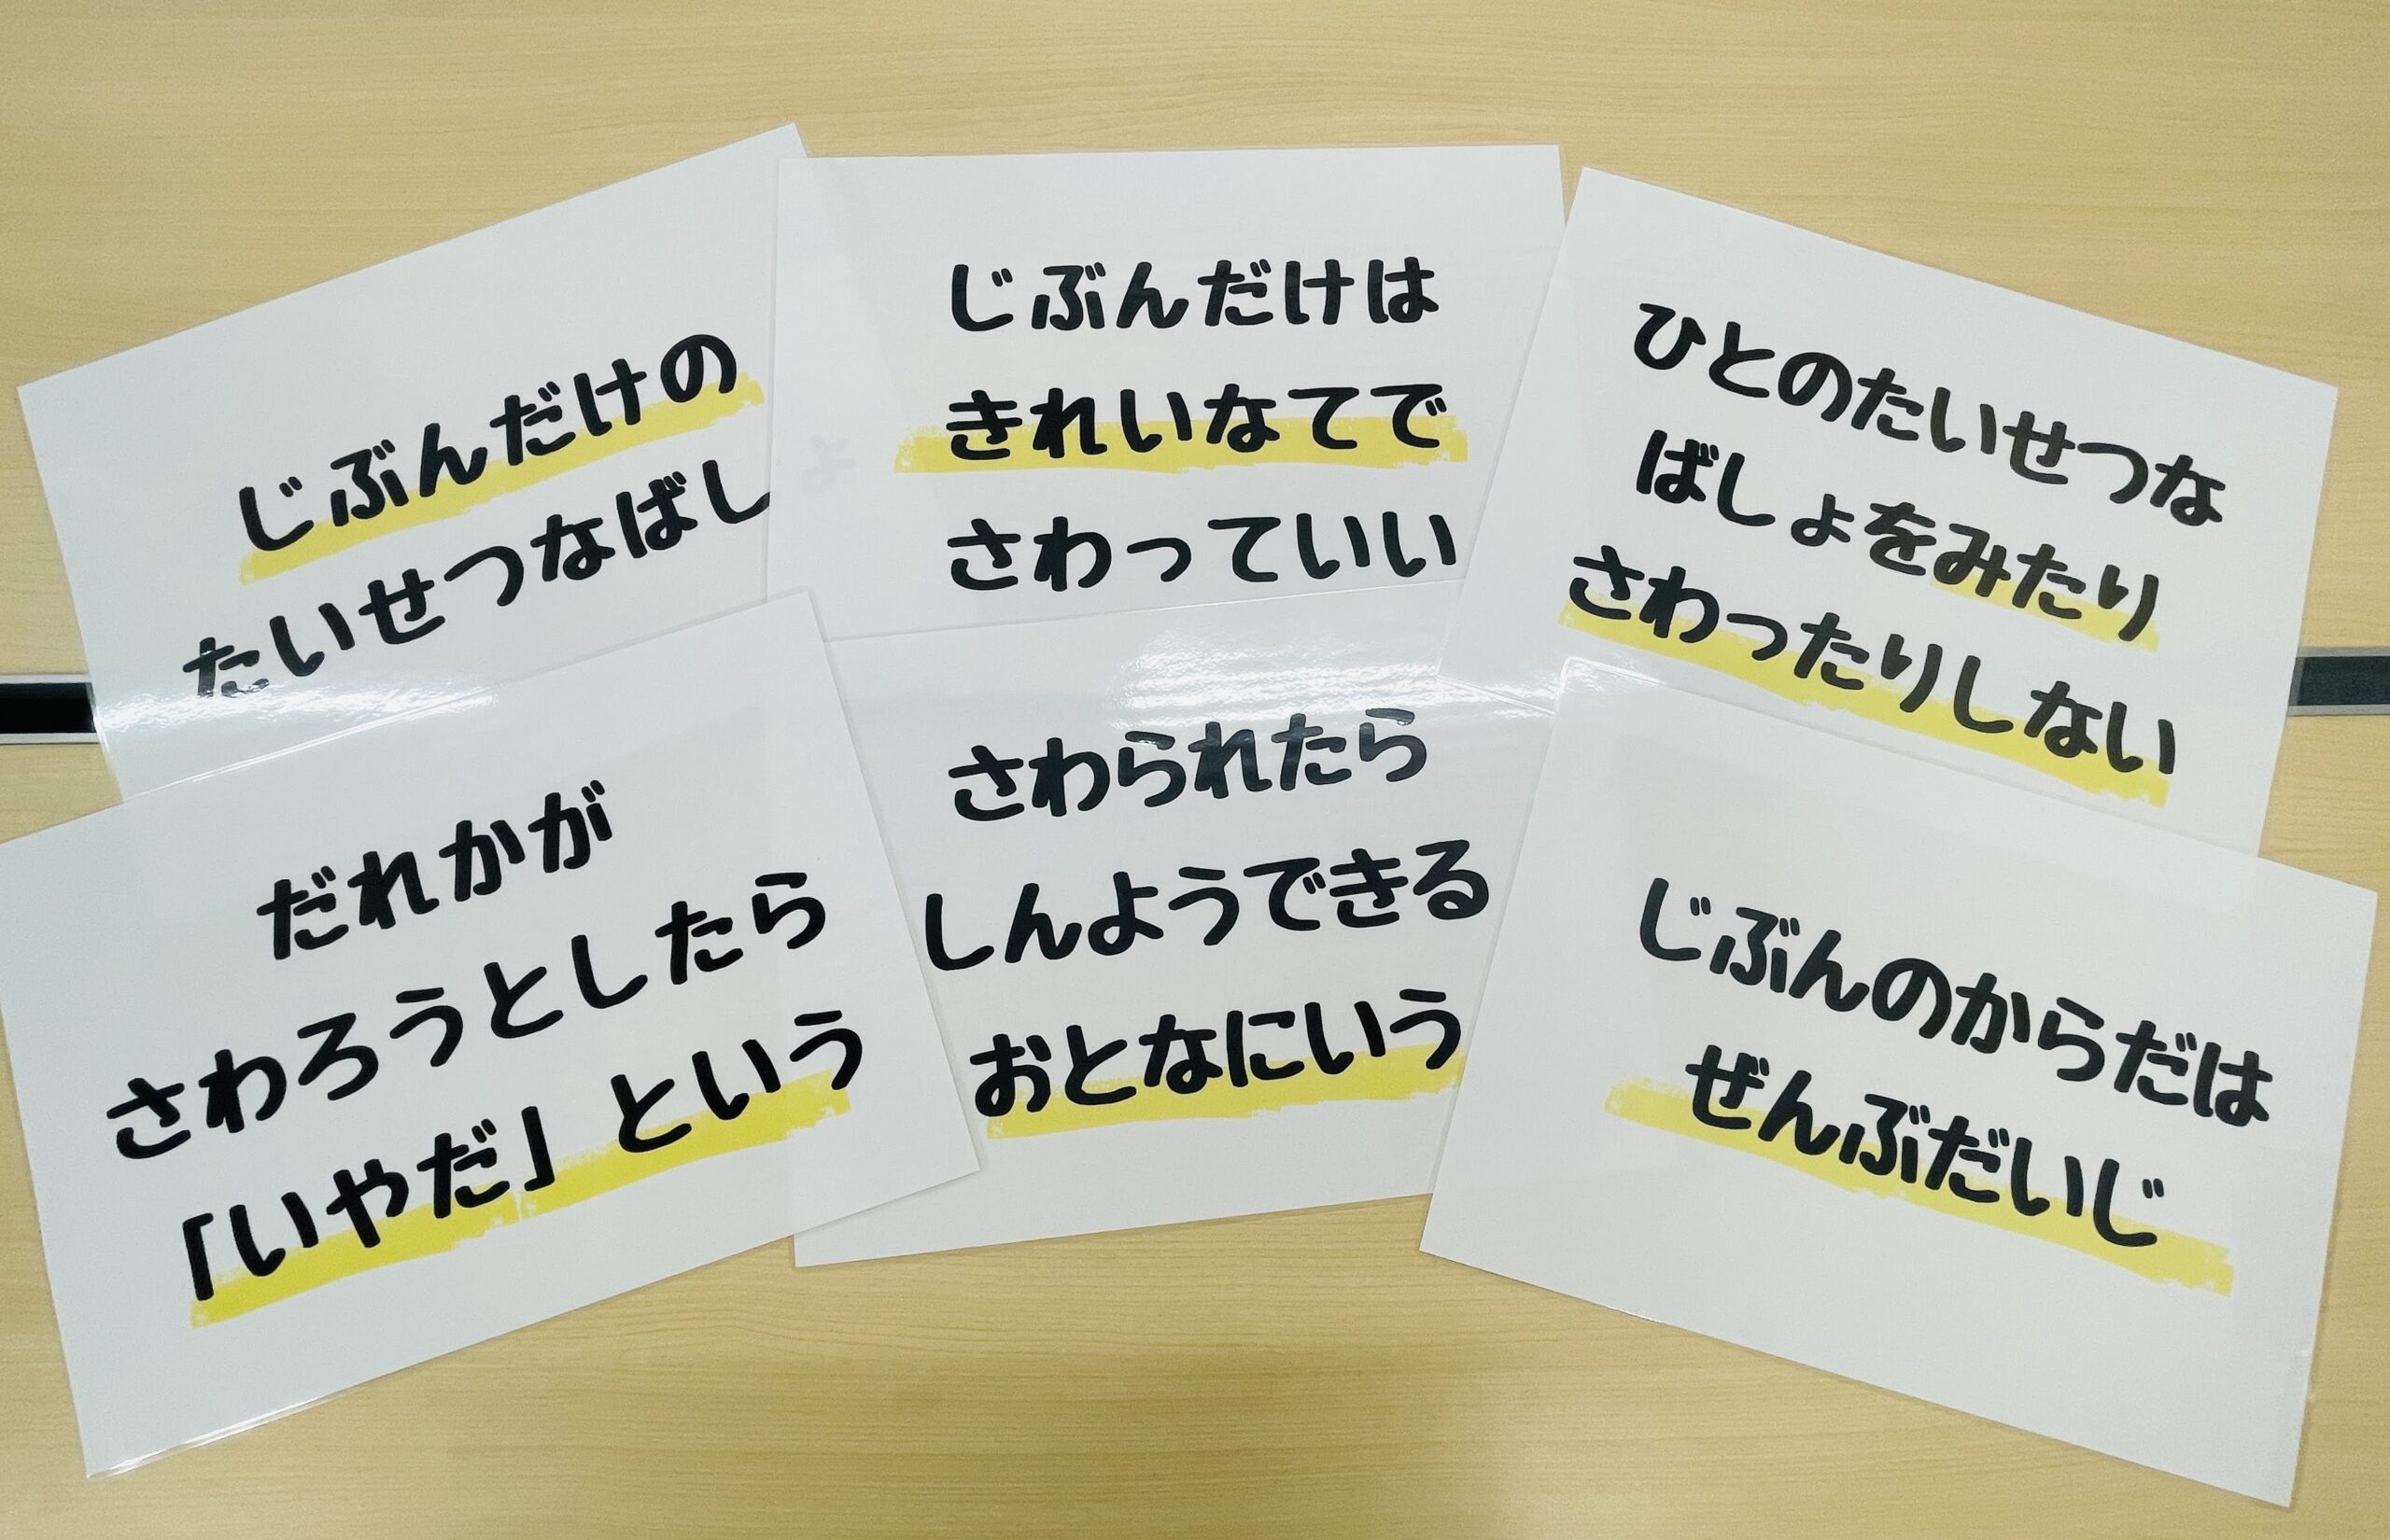 じぶんだけの
たいせつなばしょ
じぶんだけは
きれいなてで
さわっていい
ひとのたいせつな
ばしょをみたり
さわったりしない
だれかが
さわろうとしたら
「いやだ」という
さわられたら
しんようできる
おとなにいう
じぶんのからだは
ぜんぶだいじ